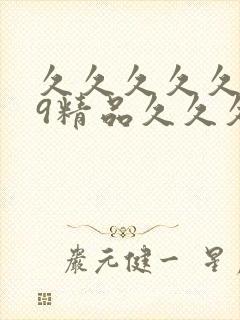 久久久久久
9精品久久久
嚴元健一 星